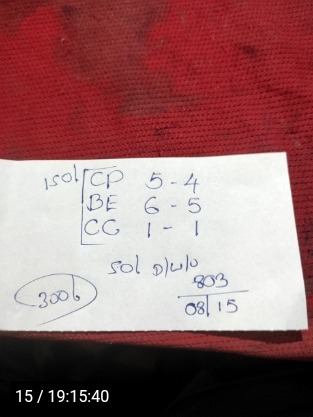 150l CP 5-4
BE 6-5
CG 1-1
50l D/W/O
803
300l 08/15
15 / 19:15:40